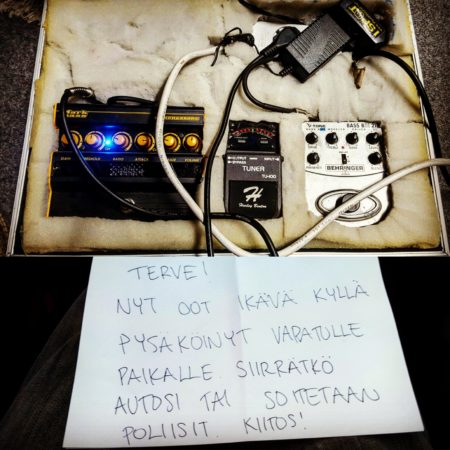 BEHRINGER
TUNER
TU-100
Harley Benton
TERVE!
NYT OOT IKÄVÄ KYLLÄ
PYSÄKÖINYT VARATULLE
PAIKALLE. SIIRRÄTKÖ
AUTOSI TAI SOITETAAN
POLIISIT. KIITOS!